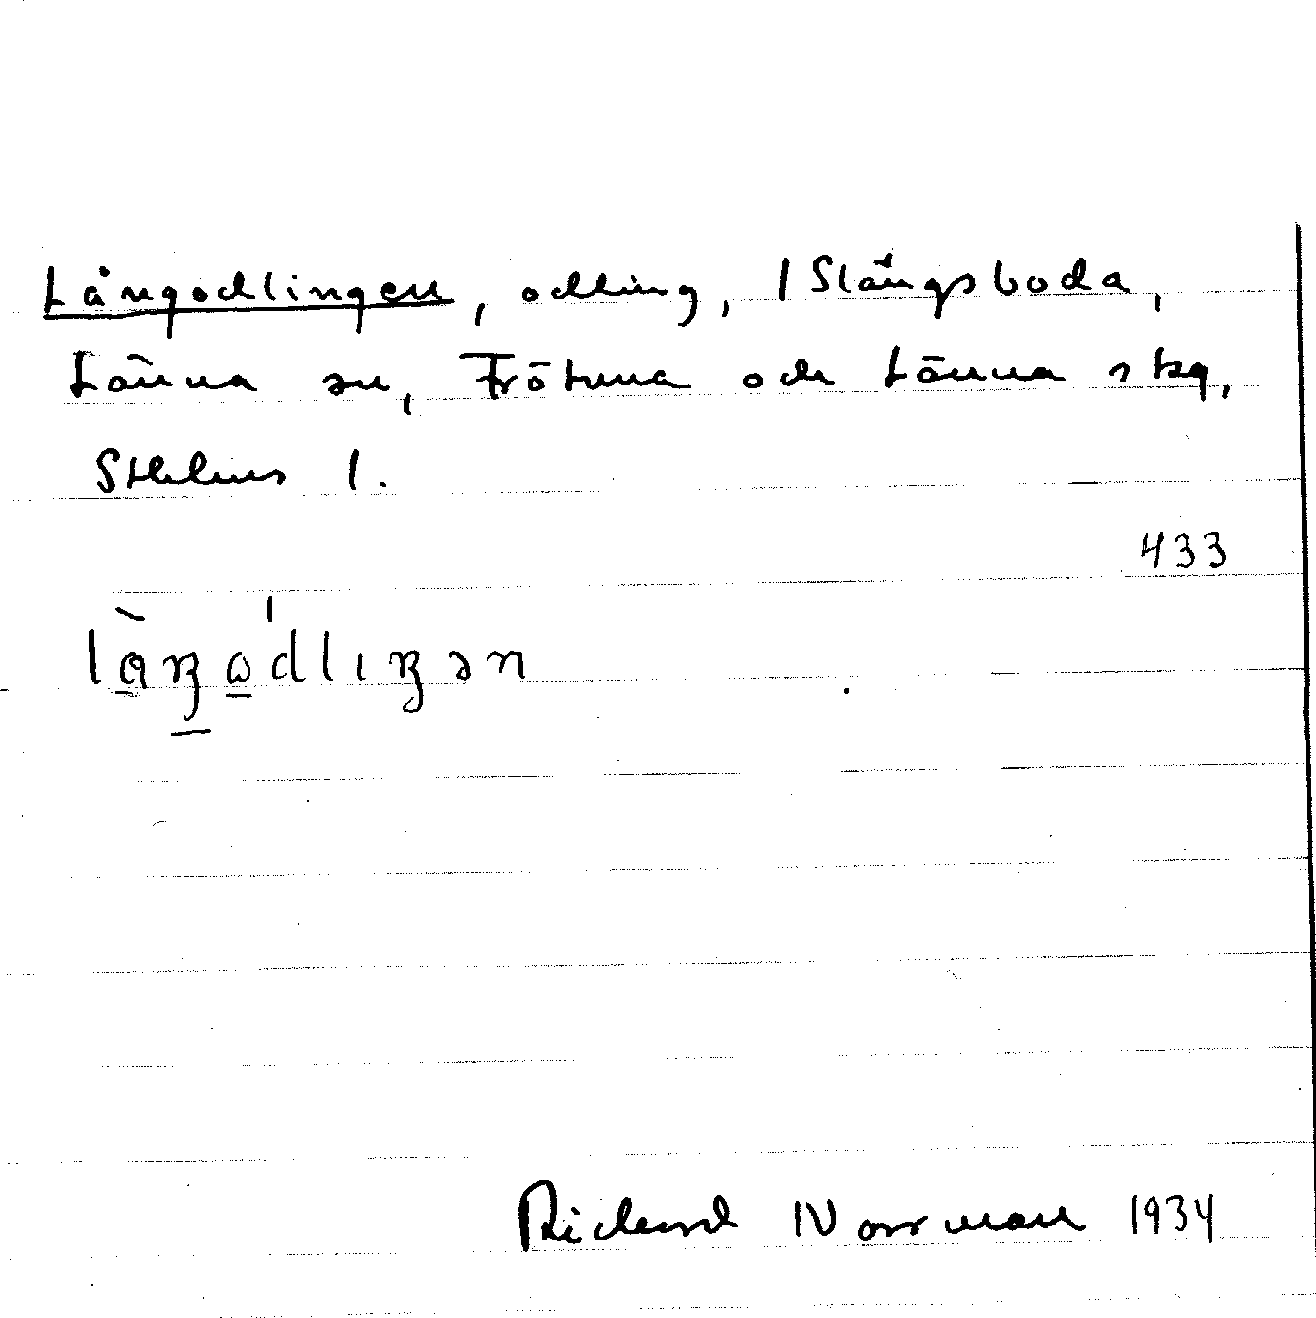 Långodlingen, odling, / Slängsboda,
Länna sn, Frötuna och Länna skg,
Sthlms l.
433
là̱ŋ̱ώ̱dlıŋən
Richard Norrman 1934